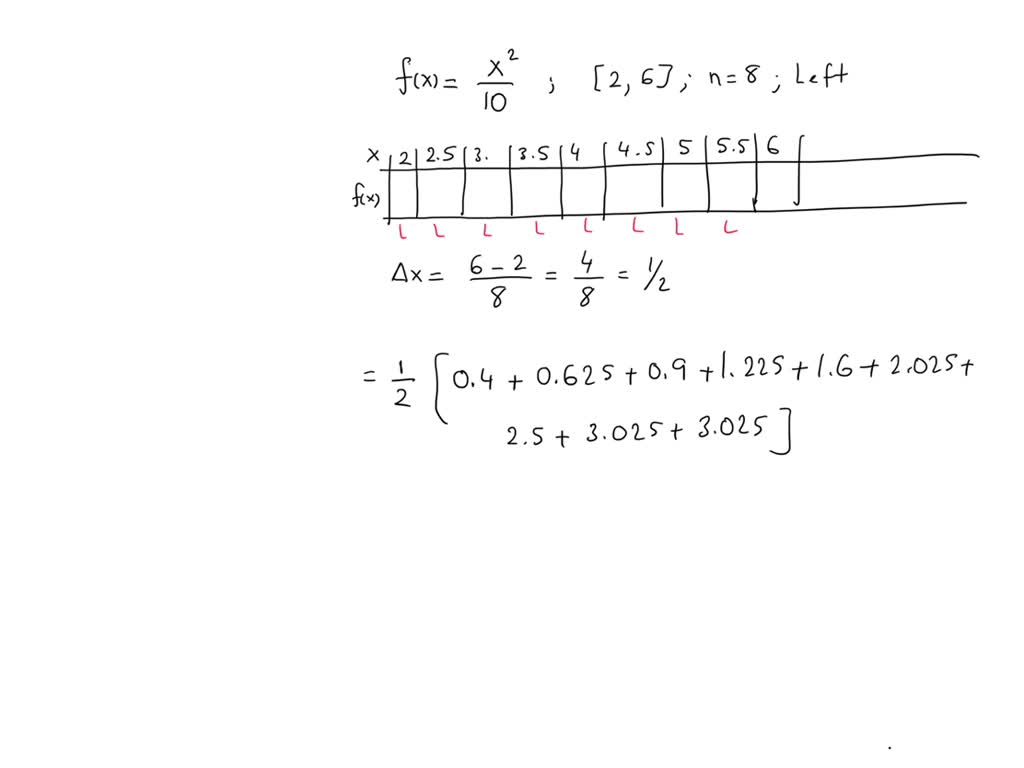 f(x) = x²/10 ; [2, 6] ; n = 8 ; Left
x | 2 | 2.5 | 3. | 3.5 | 4 | 4.5 | 5 | 5.5 | 6
f(x)
L L L L L L L L
Δx = 6 - 2/8 = 4/8 = 1/2
= 1/2 [0.4 + 0.625 + 0.9 + 1.225 + 1.6 + 2.025 +
2.5 + 3.025 + 3.025]